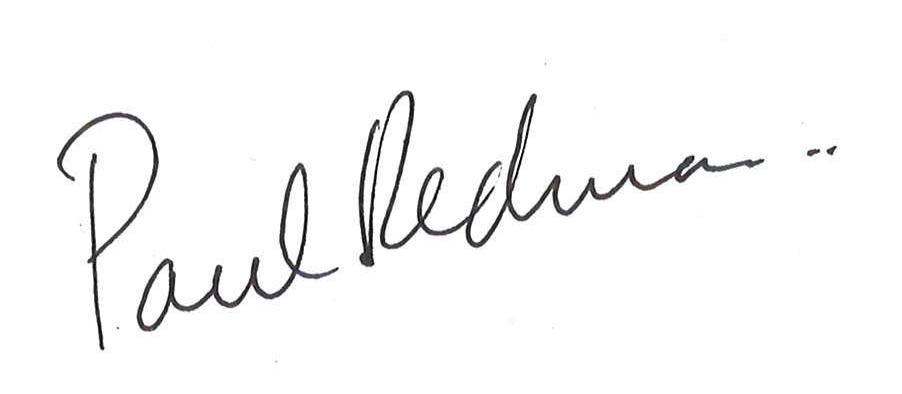 Paul Redman